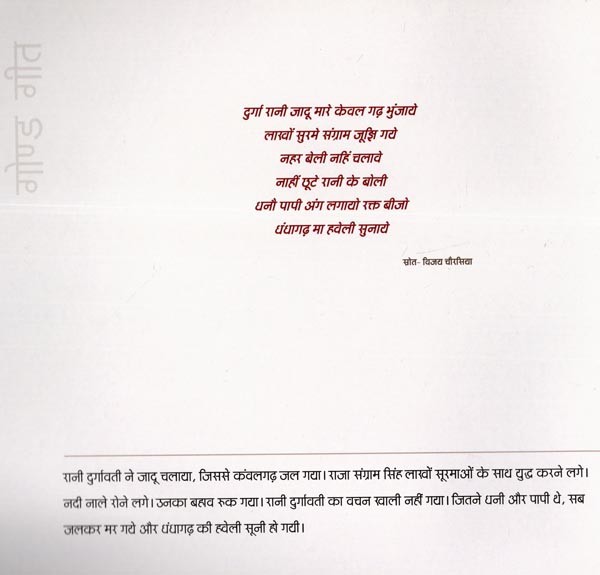 गोण्ड गीत
दुर्गा रानी जादू मारे केवल गढ़ भुंजाये
लाखों सुरमे संग्राम जूझि गये
नहर बेली नहिं चलावे
नाहीं छूटे रानी के बोली
धनौ पापी अंग लगायो रक्त बीजो
धंधागढ़ मा हवेली सुनाये
स्रोत- विजय चौरसिया
रानी दुर्गावती ने जादू चलाया, जिससे कंवलगढ़ जल गया। राजा संग्राम सिंह लाखों सूरमाओं के साथ युद्ध करने लगे।
नदी नाले रोने लगे। उनका बहाव रुक गया। रानी दुर्गावती का वचन खाली नहीं गया। जितने धनी और पापी थे, सब
जलकर मर गये और धंधागढ़ की हवेली सूनी हो गयी।